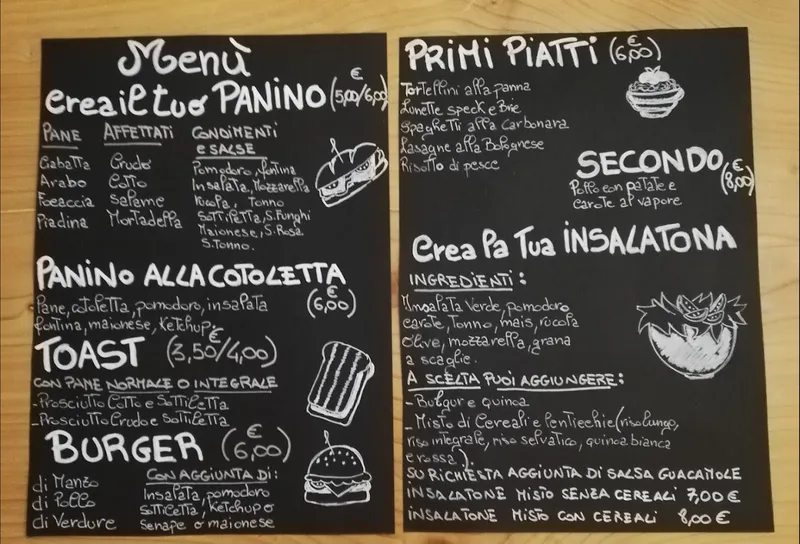 Menù
crea il tuo PANINO (5,00/6,00 €)
PANE AFFETTATI CONDIMENTI
e SALSE
Ciabatta Crudo Pomodoro, fontina
Arabo Cotto Insalata, Mozzarella
Focaccia Salame Rucola, Tonno
Piadina Mortadella Sottiletta, S. Funghi
Maionese, S. Rosa
S. Tonno.
PANINO ALLA COTOLETTA
- Pane, cotoletta, pomodoro, insalata (6,00 €)
fontina, maionese, Ketchup
TOAST (3,50/4,00 €)
CON PANE NORMALE O INTEGRALE
- Prosciutto Cotto e Sottiletta
- Prosciutto Crudo e Sottiletta
BURGER (6,00 €)
CON AGGIUNTA DI:
di Manzo Insalata, pomodoro
di Pollo sottiletta, Ketchup o
di Verdure senape o maionese
PRIMI PIATTI (6,00 €)
Tortellini alla panna
Lunette speck e Brie
Spaghetti alla Carbonara
Lasagne alla Bolognese
Risotto di pesce
SECONDO (8,00 €)
Pollo con patate e
carote al vapore
crea la Tua INSALATONA
INGREDIENTI:
Insalata Verde, pomodoro
carote, Tonno, mais, rucola
Olive, mozzarella, grana
a scaglie.
A SCELTA PUOI AGGIUNGERE:
- Bulgur e quinoa
- Misto di Cereali e lenticchie (riso lungo,
riso integrale, riso selvatico, quinoa bianca
e rossa)
SU RICHIESTA AGGIUNTA DI SALSA GUACAMOLE
INSALATONE MISTO SENZA CEREALI 7,00 €
INSALATONE MISTO CON CEREALI 8,00 €